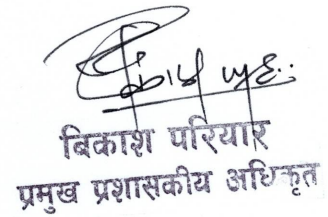 बिकाश परियार
प्रमुख प्रशासकीय अधिकृत